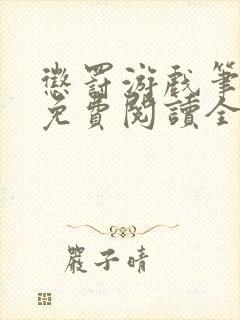 懲罰游戲筆
免費閱讀全
嚴子晴